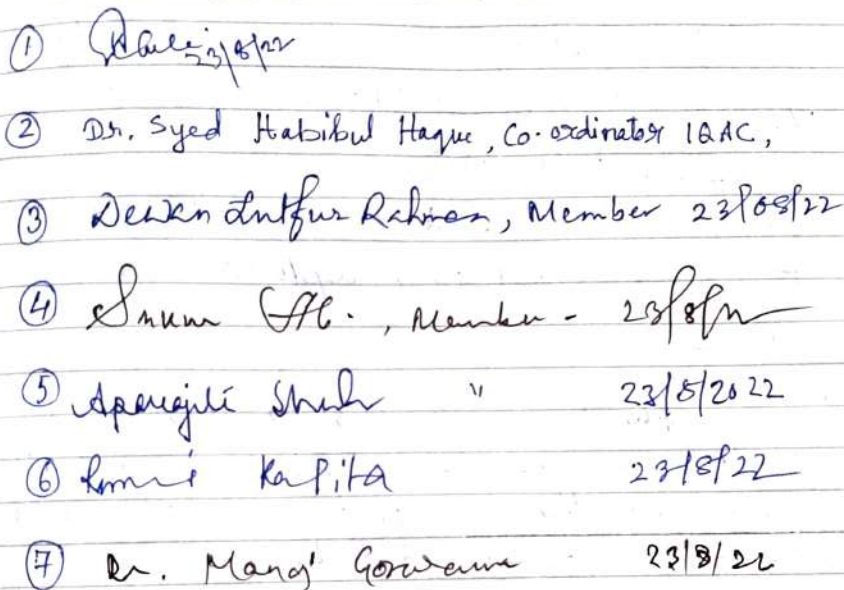 ① 23/8/22
② Dr. Syed Habibul Haque, Co-ordinator IQAC,
③ Dewan Lutfur Rahman, Member 23/08/22
④ , Member - 23/8/22
⑤ 〃 23/8/2022
⑥ Kalita 23/8/22
⑦ Dr. Manoj Goswami 23/8/22